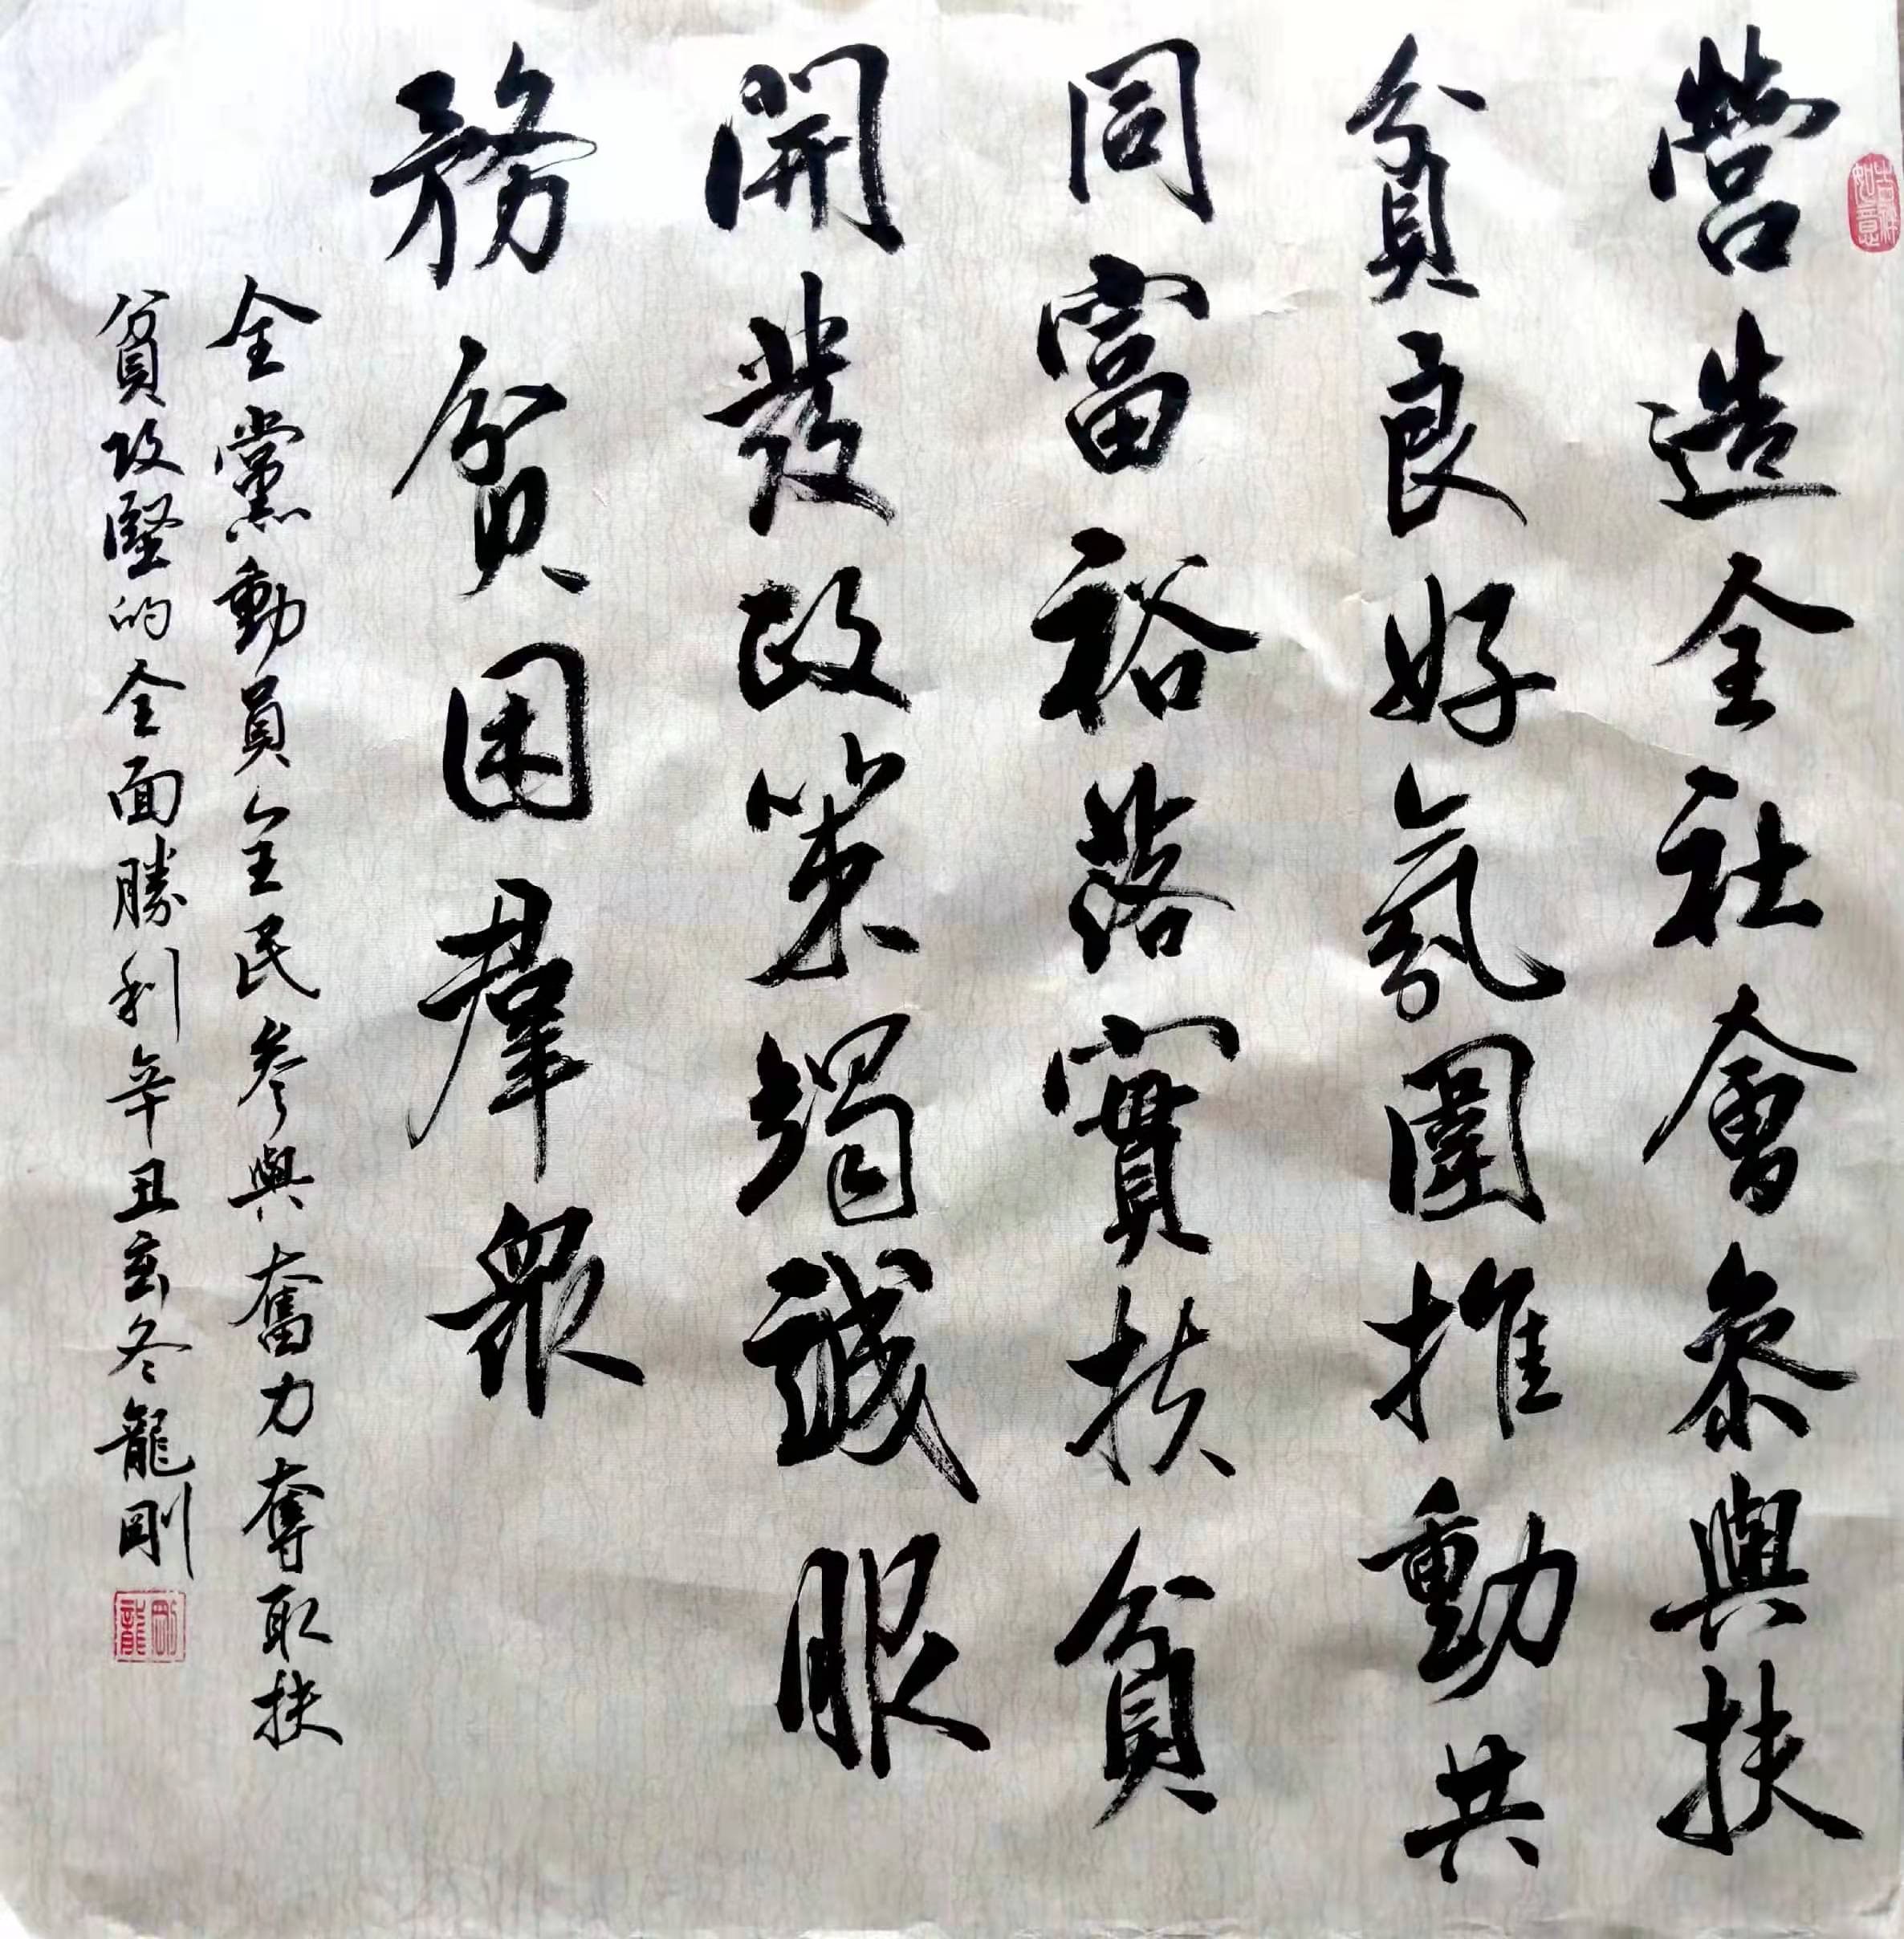 營造全社會參與扶
貧良好氛圍推動共
同富裕落實扶貧
開發政策竭誠服
務貧困群眾
全黨動員全民參與奮力奪取扶
貧攻堅的全面勝利辛丑玄冬龍剛
吉祥如意
龍剛